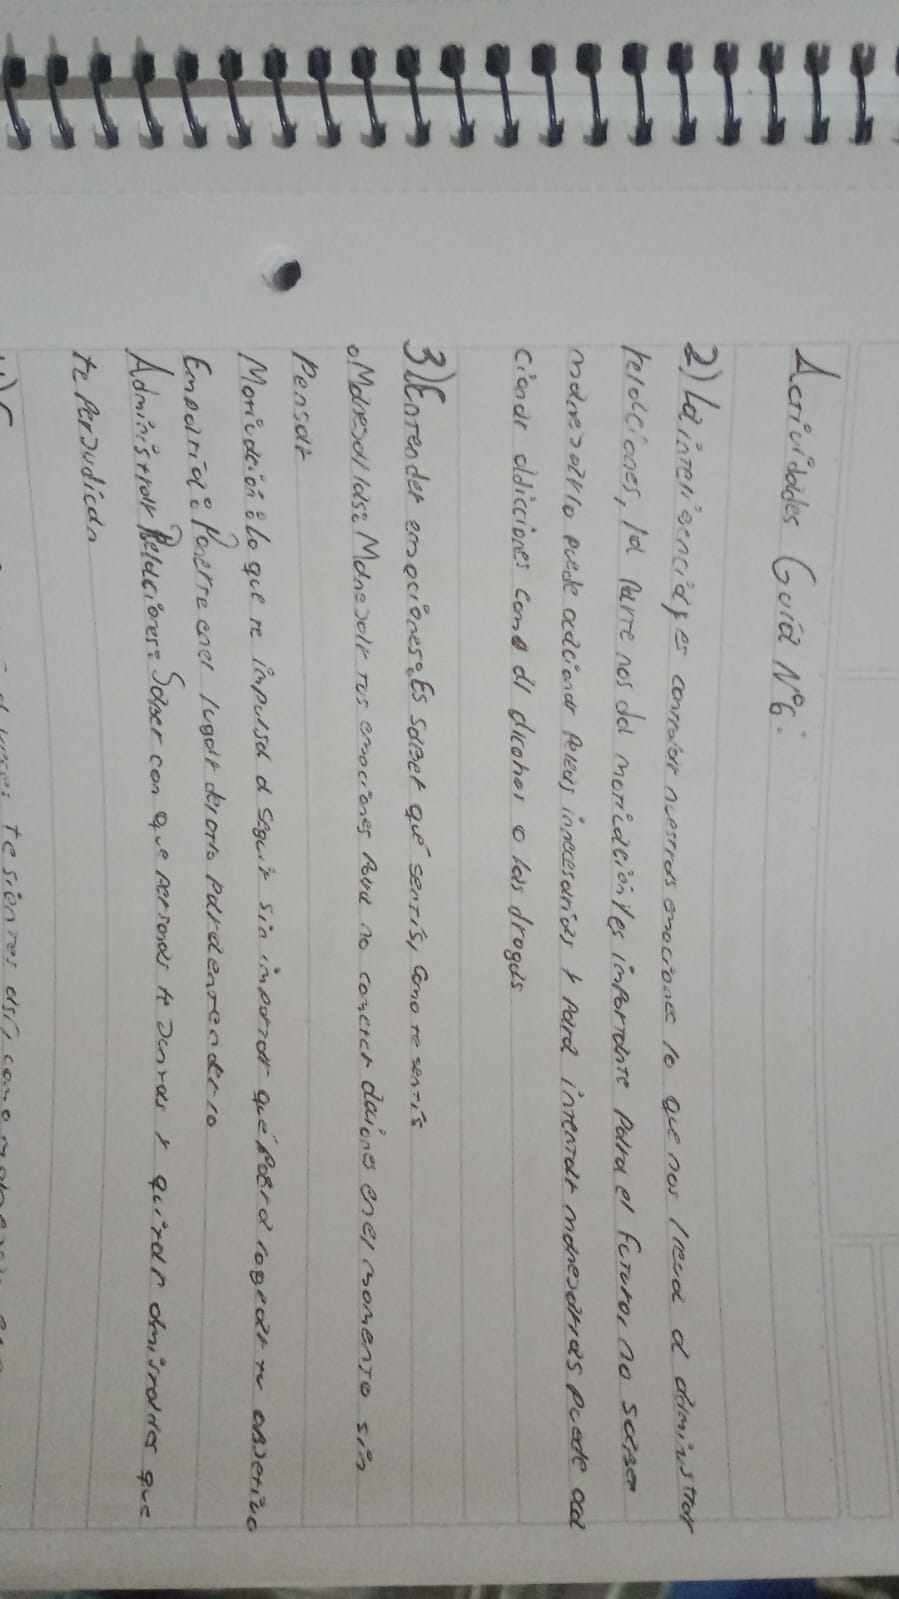 Actividades Guía N°6:
2) La inteligencia es controlar nuestras emociones lo que nos lleva a administrar
relaciones, la parte nos da motivación y es importante para el futuro, no saber
manejarlo puede accionar peleas innecesarias y para intentar manejarlas puede acci
cionar adicciones como al alcohol o las drogas
3) Entender emociones: Es saber qué sentís, como te sentís
Manejarlas: Manejar tus emociones para no cometer daciones en el momento sin
Pensar
Motivación: lo que te impulsa a seguir sin importar qué para lograr tu objetivo
Empatía: Ponerte en el lugar del otro para entenderlo
Administrar Relaciones: Saber con que personas te juntas y quitar amistades que
te perjudican
te sientes así, como